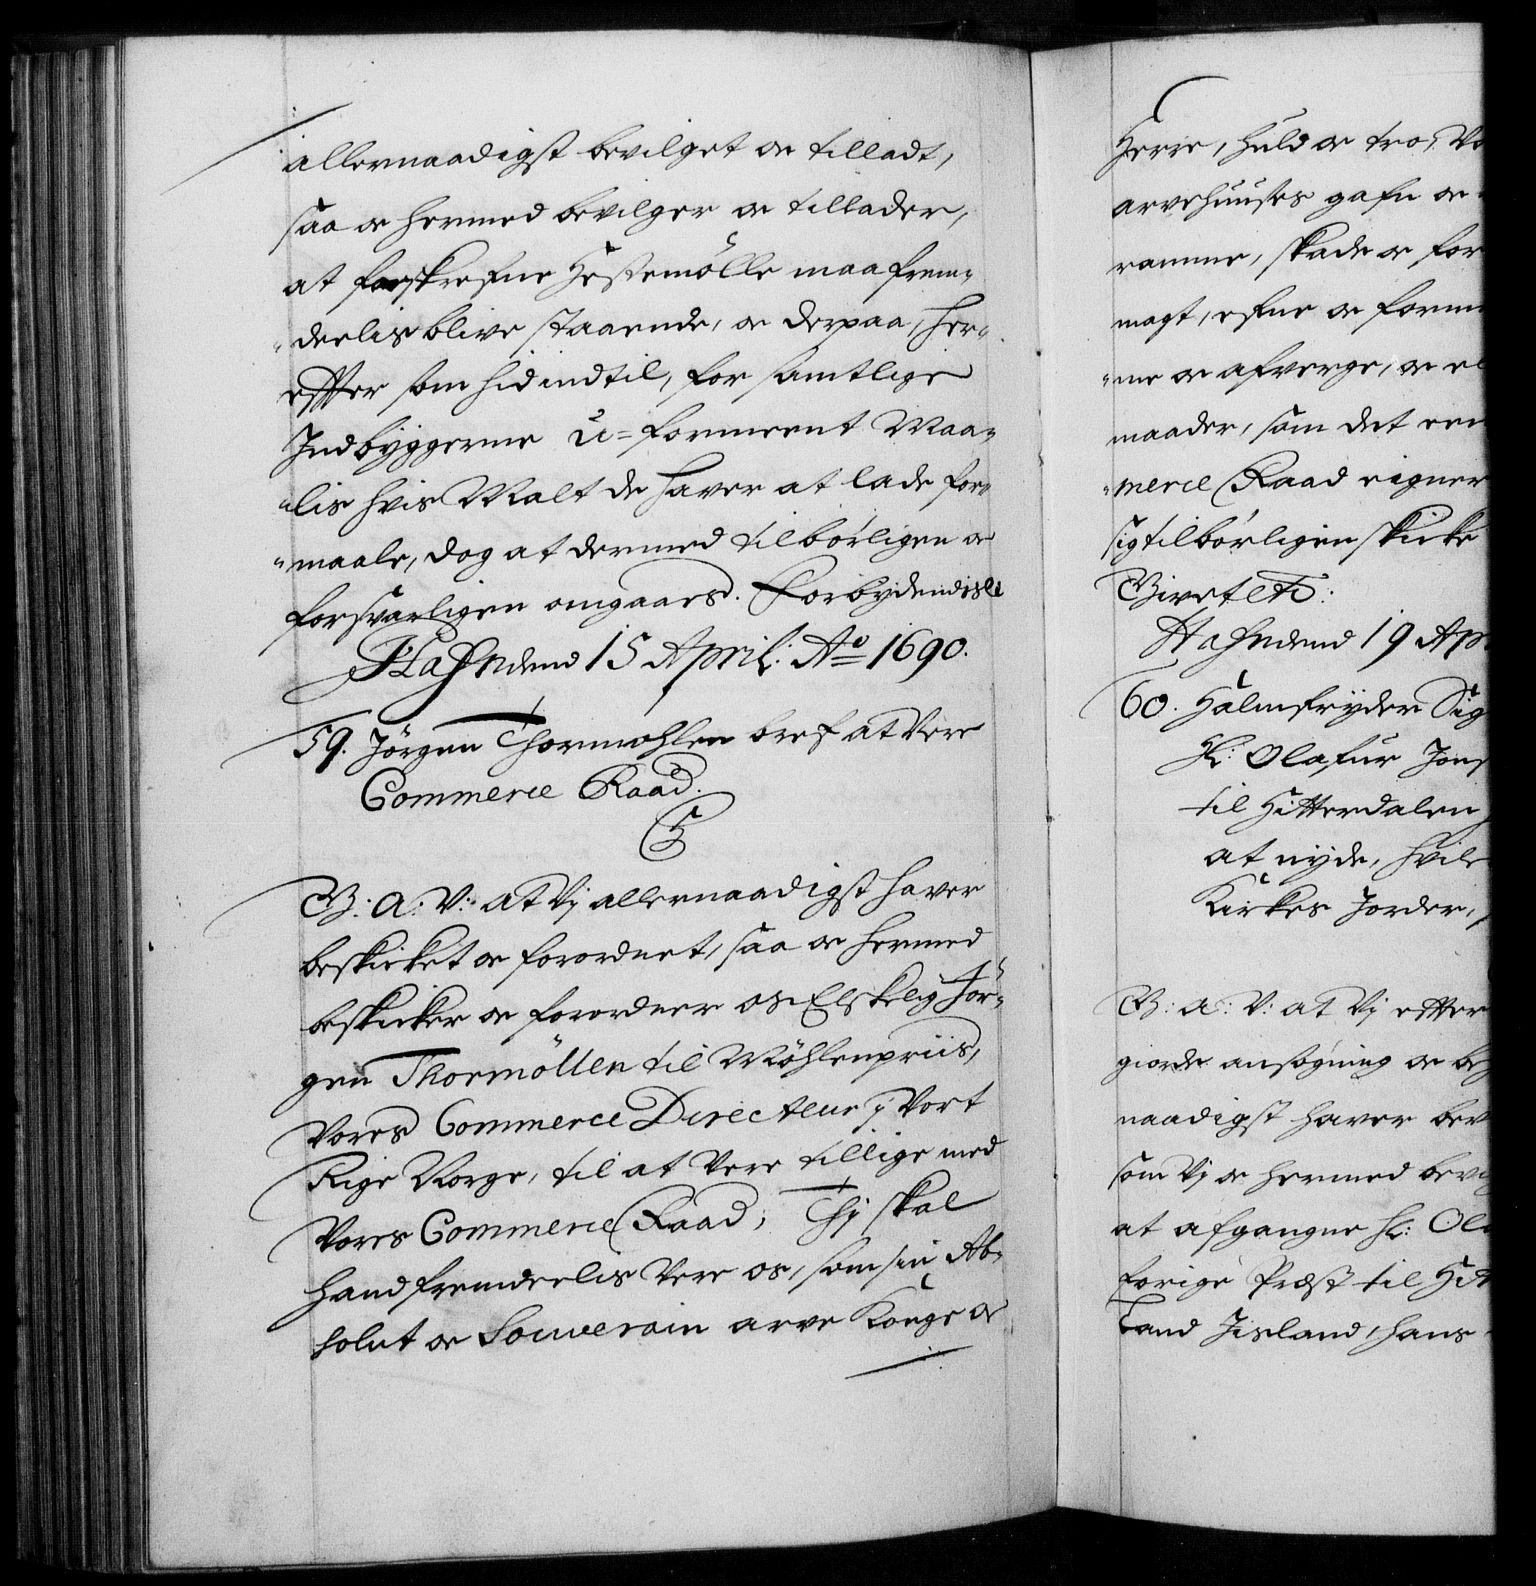 allernaadigst bevilget oc tilladt,
saa oc hermed bevilger oc tillader,
at forskrefne Hestemølle maa frem-
deelis blive staaende, oc derpaa, her-
effter som hidindtil, for samtlige
Indbyggerne u=formeent Maa-
lis hvis Malt de haver at lade for-
maale, dog at dermed tilbørligen oc
forsvarligen omgaaes. Forbydendis etc
Hafn dend 15 April: Ao 1690.
59. Jörgen Thormohlen bref at Vere
Commerce Raad.
C5
G: A: V: at Vj allernaadigst haver
beskicket oc forordnet, saa oc hermed
beskicker oc forordner os Elskelig Jör-
gen Thormöllen til Möhlenpriis,
Vores Commerce Directeur j Vort
Rige Norge, til at Vere tillige med
Vores Commerce Raad; Thj skal
hand fremdeelis Vere os, som sin Ab-
solut oc Souverain arve Konge oc
Herre, huld oc tro, Vo
arvehuuses gafn oc
ramme, skade oc for
magt, efne oc form
me oc afverge, oc el
maader, som det een
merce Raad eigner
sig tilbörligen skicke
Givet etc:
Hafn dend 19 Apr
60. Halmfryder Sig
Hr: Olafur Jons
til Hitterdalen
at nyde, hvile
Kirkes Jorder,
G: A: V: at Vj effter
giorde ansøgning oc beg
naadigst haver bev
som Vj oc hermed bevi
at afgangne Hr: Ola
forige Præst til Hit
Land Jisland, hans